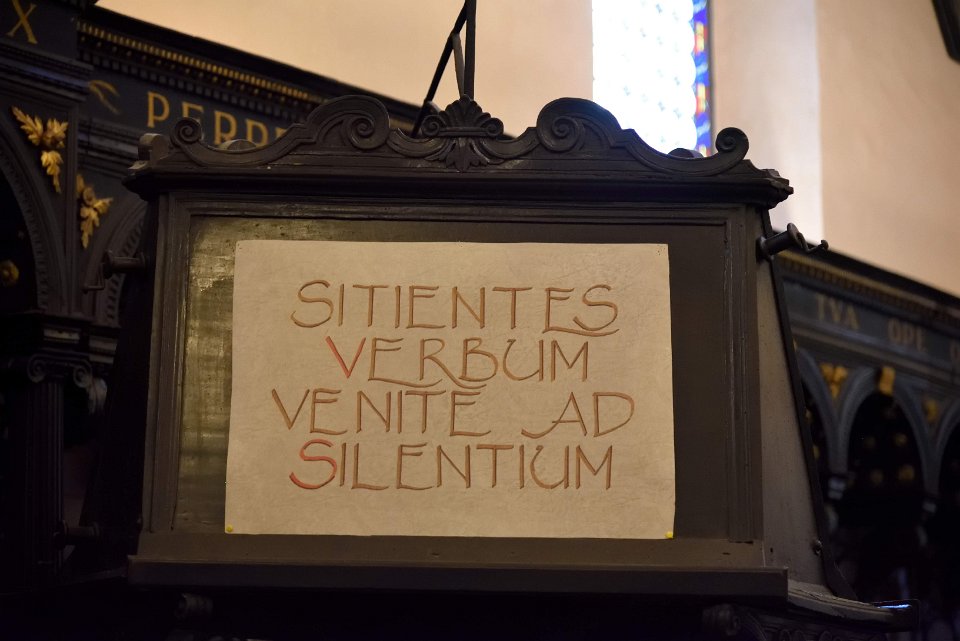 X
PERPE
SITIENTES
VERBUM
VENITE AD
SILENTIUM
TVA OPE